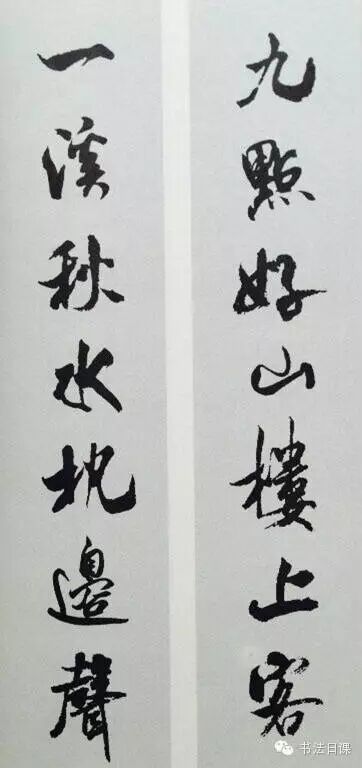 九點好山樓上客
一溪秋水枕邊聲
书法日课